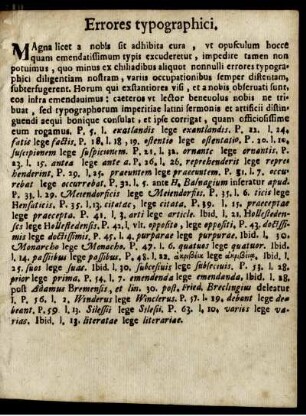 Errores typographici.
MAgna licet a nobis sit adhibita cura, vt opusculum hocce
quam emendatissimum typis excuderetur, impedire tamen non
potuimus, quo minus ex chiliadibus aliquot nonnulli errores typogra-
phici diligentiam nostram, variis occupationibus semper distentam,
subterfugerent. Horum qui exstantiores visi, et a nobis obseruati sunt,
eos infra emendauimus: caeteros vt lector beneuolus nobis ne tri-
buat, sed typographorum imperitiae latini sermonis et artificii distin-
guendi aequi bonique consulat, et ipse corrigat, quam officiosissime
eum rogamus. P. 5, l. exatlandis lege exantlandis. P. 12. l. 24,
fatis lege factis, P. 18, l. 18, 19. osentio lege ossentatio. P. 20. l. 21.
suscipionem lege suspicionem. P. 21. l. 12. ornante lege ornantis. P.
23. l. 15. antea lege ante a. P. 26, l. 26. reprehenderit lege repre
henderint. P. 29, l. 25. praeuntem lege praeeuntem. P. 31. l. 7. occu-
rebat lege occurrebat. P. 32, l. 5. ante H. Balnagium inseratur apud.
P. 33, l. 29. Meiendorficis lege Meiendorfiis. P. 35. l. 6. ticis lege
thensaticis. P. 35, l. 13. citatas, lege citata. P. 39. l. 15. praeceptae
lege praecepta. P. 41. l. 3. arti lege article. Ibid. l. 21. Hollesteden-
ses lege Hollestedensis. P. 41. l. vlt. oppsito, lege oppositi, P. 43. doctissi-
mis lege doctissimi. P. 45. l. 4. purparae lege purpurae. Ibid. l. 30.
Monarcho lege Menacho. P. 47. l. 6. quatuos lege quatuor. Ibid.
l. 14. paessibus lege passibus. P. 48. l. 22. lege Ibid. l.
2. suas lege suae. Ibid. l. 30. subcesiuis lege subseciuis. P. 53. l. 28.
prior lege prima. P. 54. l. 7. emendenda lege emendanda, ibid. l. 28.
post Adamus Bremensis, et lin. 30. post, Fried. Brecklingius deleatur
l, P. 56, l. 2, Winderus lege Winclerus. P. 57. l. 29, debant lege de-
beant, P. 59. l. 13. Silessii lege Silesii. P. 63. l. 10, varius lege va-
rias. Ibid. l. 13. literatae lege literariae.